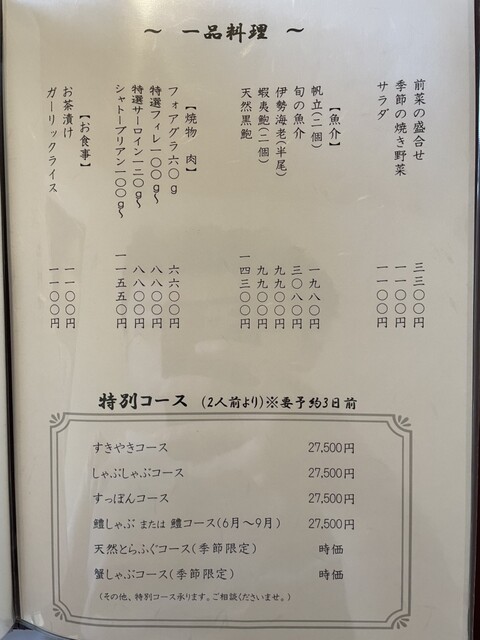 ～ 一品料理 ～
前菜の盛合せ 三三〇〇円
季節の焼き野菜 一一〇〇円
サラダ 一一〇〇円
【魚介】
帆立(二個) 一九八〇円
旬の魚介 三〇八〇円
伊勢海老(半尾) 九九〇〇円
蝦夷鮑(二個) 九九〇〇円
天然黒鮑 一四三〇〇円
【焼物 肉】
フォアグラ六〇g 六六〇〇円
特選フィレ一〇〇g～ 八八〇〇円
特選サーロイン一二〇g～ 八八〇〇円
シャトーブリアン一〇〇g～ 一一五五〇円
【お食事】
お茶漬け 一一〇〇円
ガーリックライス 一一〇〇円
特別コース (2人前より)※要予約3日前
すきやきコース 27,500円
しゃぶしゃぶコース 27,500円
すっぽんコース 27,500円
鱧しゃぶ または 鱧コース(6月～9月) 27,500円
天然とらふぐコース(季節限定) 時価
蟹しゃぶコース(季節限定) 時価
(その他、特別コース承ります。ご相談くださいませ。)